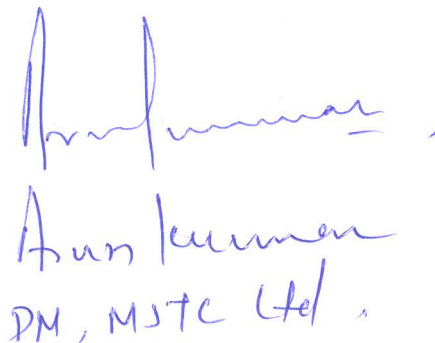 Arunkumar
Arun kumar
DM, MSTC Ltd.